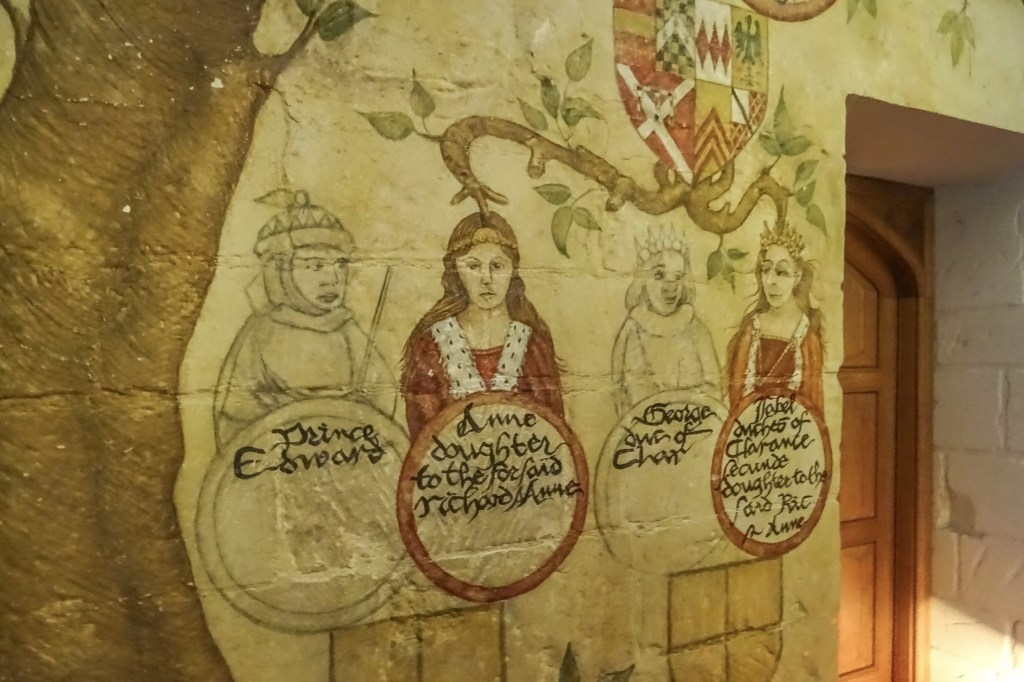 Prince
Edward
Anne
doughter
to the forsaid
richard Anne
George
duc of
Clar
Isabel
duches of
Clarance
secunde
doughter to the
said Ric
Anne